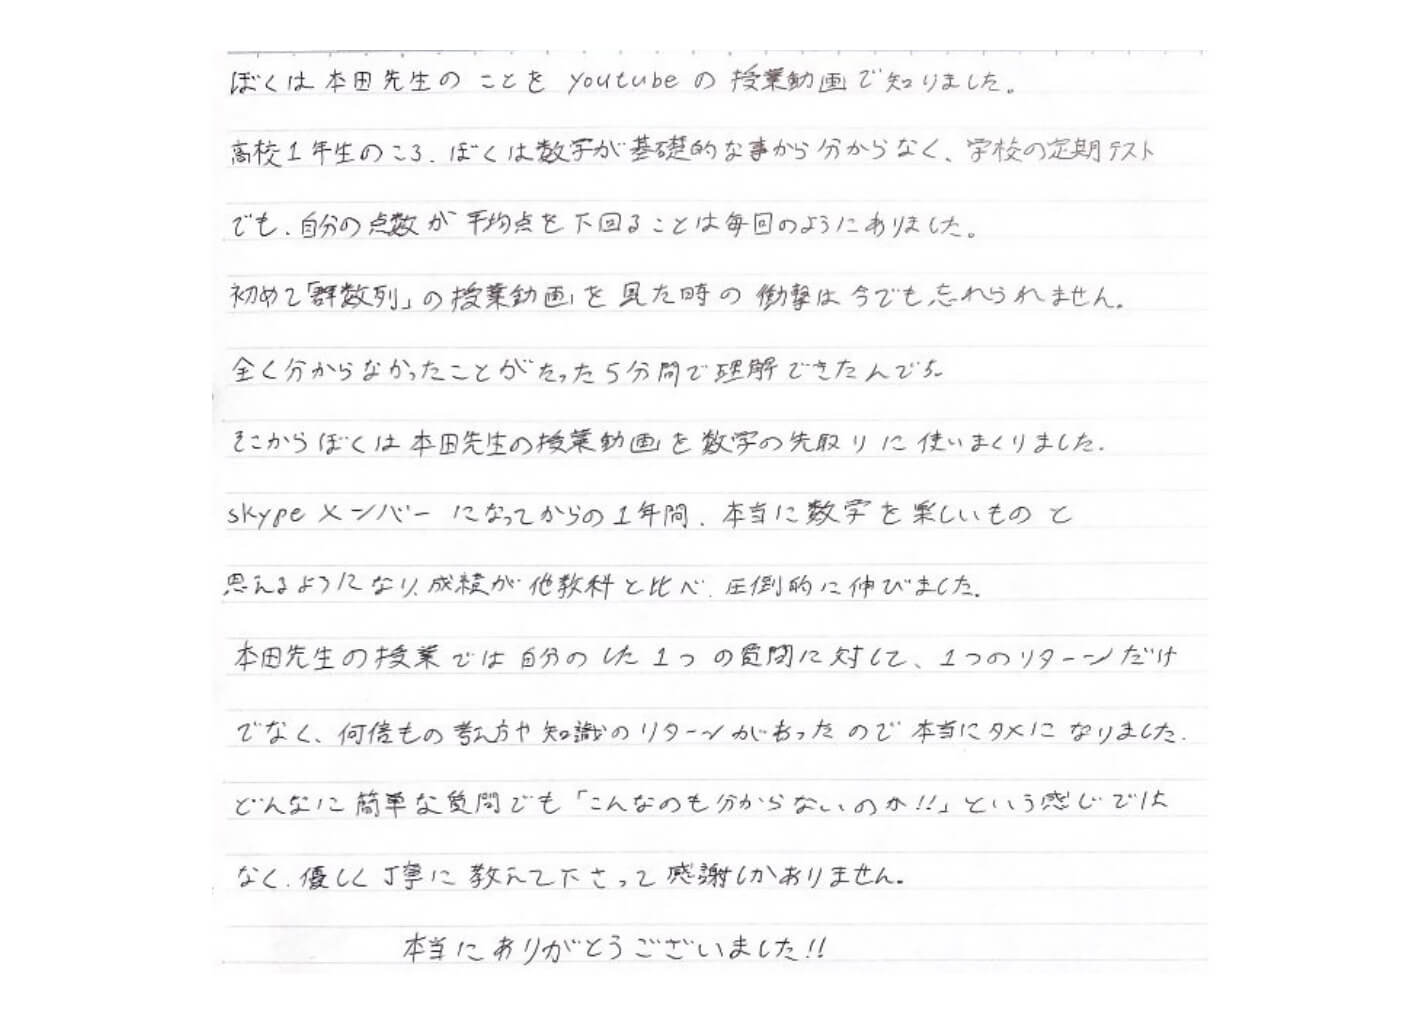 ぼくは本田先生のことをyoutubeの授業動画で知りました。
高校1年生のころ、ぼくは数学が基礎的な事から分からなく、学校の定期テスト
でも、自分の点数が平均点を下回ることは毎回のようにありました。
初めて「群数列」の授業動画を見た時の衝撃は今でも忘れられません。
全く分からなかったことがたった5分間で理解できたんです。
そこからぼくは本田先生の授業動画を数学の先取りに使いまくりました。
skypeメンバーになってからの1年間、本当に数学を楽しいものと
思えるようになり、成績が他教科と比べ、圧倒的に伸びました。
本田先生の授業では自分のした1つの質問に対して、1つのリターンだけ
でなく、何倍もの考え方や知識のリターンがもらったので本当にタメになりました。
どんなに簡単な質問でも「こんなのも分からないのか!!」という感じでは
なく、優しく丁寧に教えて下さって感謝しかありません。
本当にありがとうございました!!